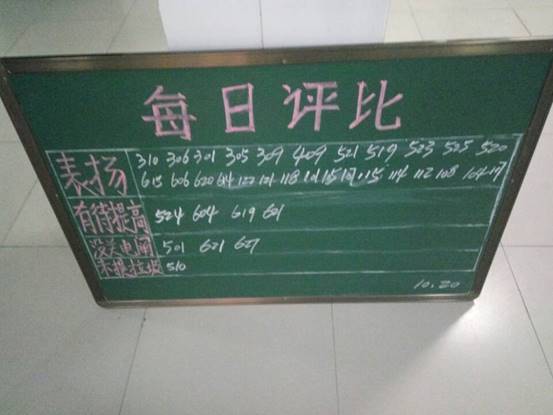 每日评比
表扬 310 306 301 305 309 409 521 519 523 525 520
615 606 620 614 122 121 118 101 115 114 112 108 104 117
有待提高 524 604 619 601
没关电闸 501 621 627
未提垃圾 510
10.20